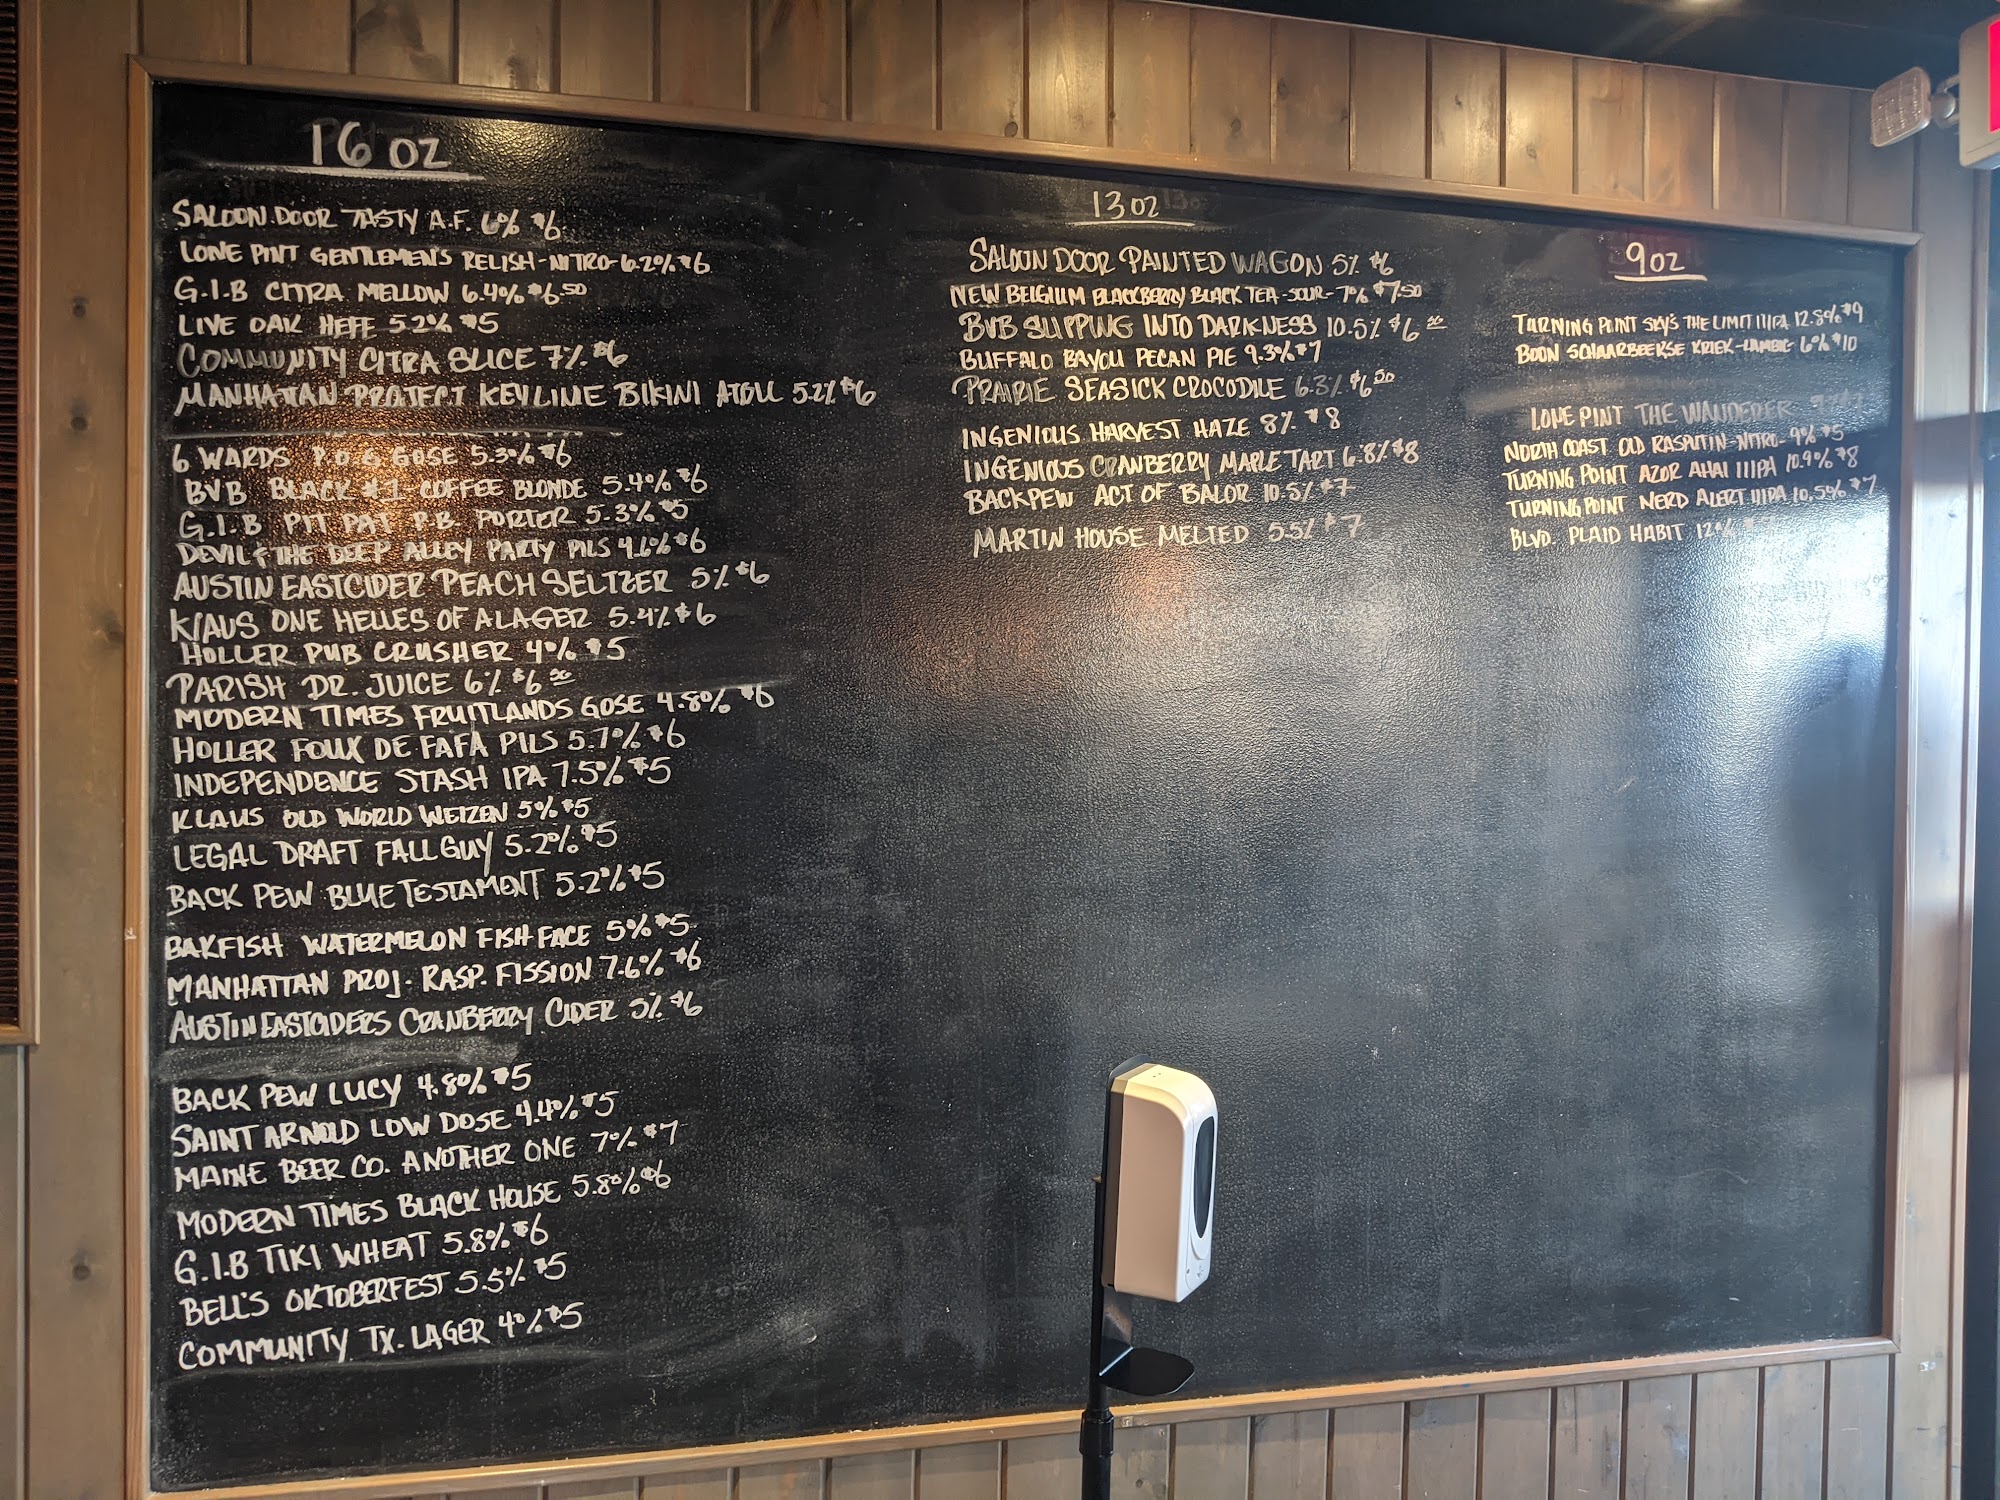 16 OZ
SALOON DOOR TASTY A.F. 6% $6
LONE PINT GENTLEMEN'S RELISH-NITRO-6.2% $6
G.I.B CITRA MELLOW 6.4% $6.50
LIVE OAK HEFE 5.2% $5
COMMUNITY CITRA SLICE 7% $6
MANHATTAN PROJECT KEYLIME BIKINI ATOLL 5.2% $6
6 WARDS P.O.G GOSE 5.3% $6
BVB BLACK #1 COFFEE BLONDE 5.4% $6
G.I.B PIT PAT P.B. PORTER 5.3% $5
DEVIL & THE DEEP ALLEY PARTY PILS 4.6% $6
AUSTIN EASTCIDER PEACH SELTZER 5% $6
KLAUS ONE HELLES OF A LAGER 5.4% $6
HOLLER PUB CRUSHER 4% $5
PARISH DR. JUICE 6% $6.50
MODERN TIMES FRUITLANDS GOSE 4.8% $6
HOLLER FOUX DE FAFA PILS 5.7% $6
INDEPENDENCE STASH IPA 7.5% $5
KLAUS OLD WORLD WEIZEN 5% $5
LEGAL DRAFT FALL GUY 5.2% $5
BACK PEW BLUE TESTAMENT 5.2% $5
BAKFISH WATERMELON FISH FACE 5% $5
MANHATTAN PROJ. RASP. FISSION 7.6% $6
AUSTIN EASTCIDERS CRANBERRY CIDER 5% $6
BACK PEW LUCY 4.8% $5
SAINT ARNOLD LOW DOSE 4.4% $5
MAINE BEER CO. ANOTHER ONE 7% $7
MODERN TIMES BLACK HOUSE 5.8% $6
G.I.B TIKI WHEAT 5.8% $6
BELL'S OKTOBERFEST 5.5% $5
COMMUNITY TX. LAGER 4% $5
13 OZ
SALOON DOOR PAINTED WAGON 5% $6
NEW BELGIUM BLACKBERRY BLACK TEA-SOUR-7% $7.50
BVB SLIPPING INTO DARKNESS 10.5% $6.50
BUFFALO BAYOU PECAN PIE 9.3% $7
PRAIRIE SEASICK CROCODILE 6.3% $6.50
INGENIOUS HARVEST HAZE 8% $8
INGENIOUS CRANBERRY MAPLE TART 6.8% $8
BACKPEW ACT OF BALOR 10.5% $7
MARTIN HOUSE MELTED 5.5% $7
9 OZ
TURNING POINT SKY'S THE LIMIT IIIPA 12.8% $9
BOON SCHAARBEEKSE KRIEK-LAMBIC 6% $10
LONE PINT THE WANDERER
NORTH COAST OLD RASPUTIN-NITRO-9% $5
TURNING POINT AZOR AHAI IIIPA 10.9% $8
TURNING POINT NERD ALERT IIIPA 10.5% $7
BLVD. PLAID HABIT 12%